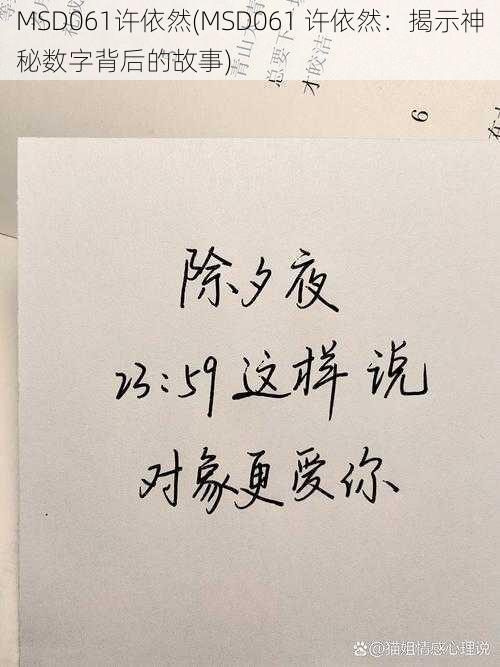 MSD061许依然(MSD061 许依然：揭示神
秘数字背后的故事)
青山大青
总要下
才皎洁
6
除夕夜
23:59这样说
对象更爱你
@猫姐情感心理说